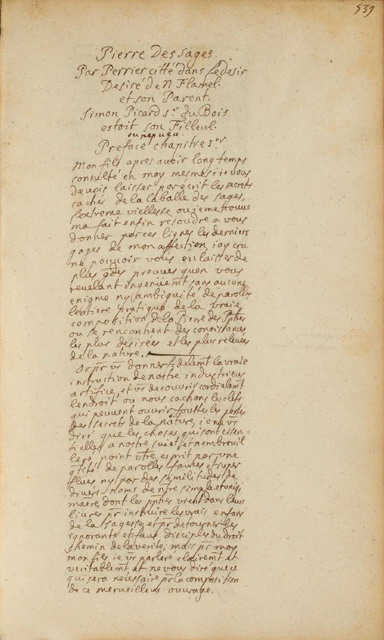 539
Pierre Des Sages
Par Perrier citté dans Le desir
Desiré de N. Flamel.
et son Parent.
Simon Picard Sr. du Bois
estoit son Filleul.
ou nepueu
Preface chapitre 1er
Mon fils apres auoir long temps
consulté en moy mesme si ie vous
deuois laisser par escrit les secrets
cachés de la Caballe des sages,
l'extreme viellesse ou ie me trouue
ma fait enfin resoudre a vous
donner par ces lignes les derniers
gages de mon affection, iay cru
ne pouuoir vous en laisser de
plus gdes preuues quen vous
reuelant ingenuemt sans aucune
enigme ny ambiguité de paroles
lentiere pratique de la vraie
composition de la Pierre des Phes
ou se rencontrent des conoissances
les plus desirées et les plus releuées
de la nature,
Or pr vs donner fidelemt la vraie
instruction de nostre industrieux
artifice, et vs decouurir cordialemt
lendroit ou nous cachons les clefs
qui peuuent ouurir touttes les portes
des secrets de la nature, ie ne vs
diré que les choses qui sont essen
tielles a nostre suiet, et nembrouil
leré point vtre esprit par une
qtité de parolles fausses et super
flues ny par des similitudes de
diuers noms de nre simple et unique
matiere dont les phes vsent dans leurs
liures pr instruire les vrais enfans
de la sagesse et pr detourner les
ignorants et faux disciples du droit
chemin de la verité; mais pr moy
mon fils ie vs parleré clairemt et
veritablemt, et ne vous diré que ce
qui sera necessaire pr la composition
de ce merueilleux ouurage.